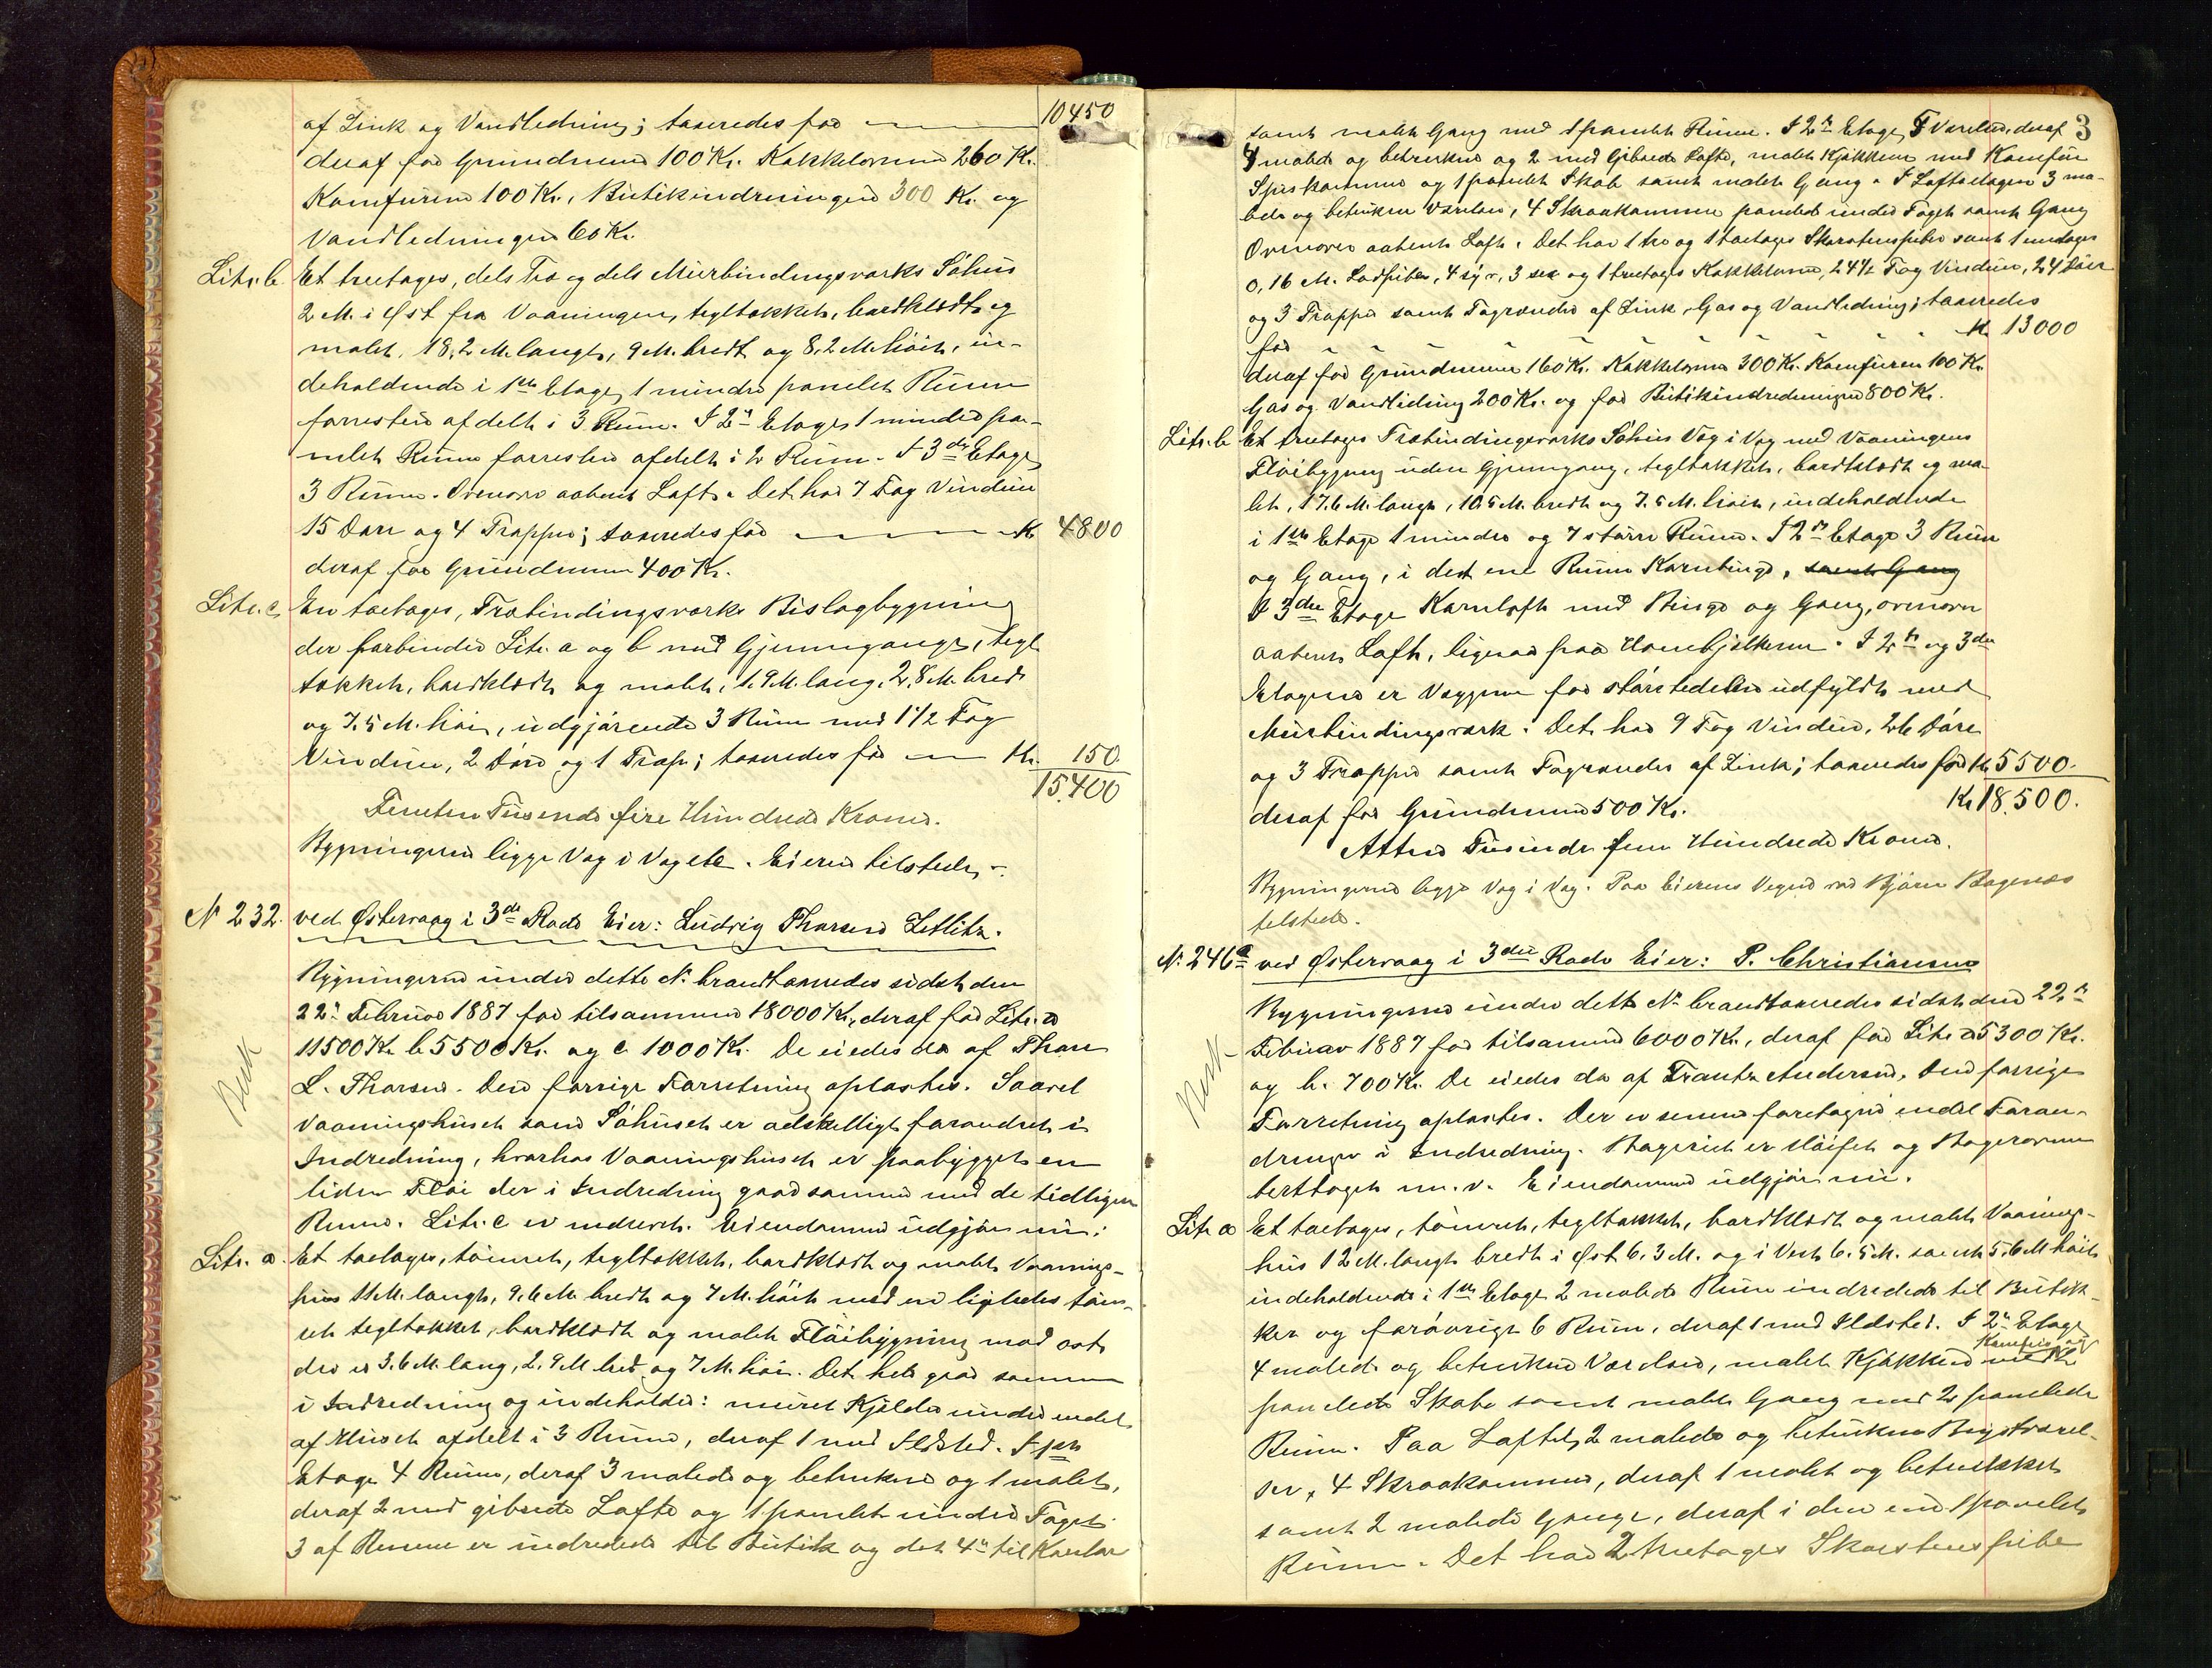 10450
af Zink og Vandledning; taxeredes for
deraf for Grundmuren 100 Kr. Kakkelovnene 260 Kr.
Komfuren 100 Kr., Butikindredningen 300 Kr. og
Vandledningen 60 Kr.
Litr. b. Et treetages, dels Træ og dels Murbindingsværks Söhus
2 M. i Øst fra Vaaningen, tegltækket, bordklædt og
malet, 18,2 M. langt, 9 M. bredt og 8,2 M. höit, in-
deholdende i 1ste Etage 1 mindre panelet Rum
forresten afdelt i 3 Rum. I 2n Etage 1 mindre pa-
nelet Rum forresten afdelt i 2 Rum. I 3die Etage
3 Rum. Ovenover aabent Loft. Det har 7 Fag Vinduer
15 Döre og 4 Trapper; taxeredes for Kr 4800
deraf for Grundmuren 400 Kr.
Litr. c. En toetages, Træbindingsværks Bislagbygning
der forbinder Litr. a og b med Gjennemgange, tegl
tækket, bordklædt og malet, 1.9 M. lang, 2,8 M. bred
og 7.5 M. höi, udgjörende 3 Rum med 1 1/2 Fag
Vinduer, 2 Döre og 1 Trap; taxeredes for Kr. 150
15.400
Femten Tusende fire Hundrede Kroner.
Bygningerne ligge Væg i Væg etc. Eieren tilstede.
N 232. ved Østervaag i 3de Rode Eier: Ludvig Thorsen Zetlitz.
Bygningerne under dette No. brandtaxeredes sidst den
22n Februar 1887 for tilsammen 18000 Kr., deraf for Litr. a
11500 Kr. b 5500 Kr. og c 1000 Kr. De eiedes da af Thore
L. Thorsen. Den forrige Forretning oplæstes. Saavel
Vaaningshuset som Söhuset er adskilligt forandret i
Indredning, hvorhos Vaaningshuset er paabygget en
liden Flöi der i Indredning gaar sammen med de tidligere
Rum. Litr. c er nedrevet. Eiendommen udgjör nu:
Litr. a. Et toetages, tömret, tegltækket, bordklædt og malet Vaanings-
hus 11 M. langt, 9.6 M. bredt og 7 M. höit med en ligeledes töm-
ret tegltækket, bordklædt og malet Flöibygning mod ost
der er 3.6 M. lang, 2.9 M. bred og 7 M. höi. Det hele gaar sammen
i Indredning og indeholder: muret Kjelder under endel
af Huset afdelt i 3 Rum, deraf 1 med Ildsted. I 1ste
Etage 4 Rum, deraf 3 malede og betrukne og 1 malet,
deraf 2 med gibsede Lofte og 1 panelet under Taget.
3 af Rummene er indredede til Butik og det 4n til Kontor
3
samt malet Gang med 1 panelet Rum. I 2n Etage 7 Værelser, deraf
4 malede og betrukne og 2 med gibsede Lofte, malet Kjökken med Komfur
Spiskammer og 1 panelet Skab samt malet Gang. I Loftsetagen 3 ma-
lede og betrukne Værelser, 4 Skraakammere panelede under Taget samt Gang
Ovenover aabent Loft. Det har 1 tre og 1 toetages Skorstenspiber samt 1 enetages
0,16 M. Lodpibe, 4 syv, 3 sex og 1 treetages Kakkelovne, 24 1/2 Fag Vinduer, 24 Döre
og 3 Trapper samt Tagrender af Zink, Gas og Vandledning; taxeredes
for Kr 13000
deraf for Grundmuren 160 Kr. Kakkelovne 300 Kr. Komfuren 100 Kr.
Gas og Vandledning 200 Kr. og for Butikindredningen 800 Kr.
Litr. b Et treetages Træbindingsværks Söhus Væg i Væg med Vaaningens
Flöibygning uden Gjennemgang, tegltækket, bordklædt og ma-
let, 17.6 M. langt, 10.5 M. bredt og 7.5 M. höit, indeholdende
i 1ste Etage 1 mindre og 7 större Rum. I 2n Etage 3 Rum
og Gang, i det ene Rum Kornbinge, samt Gang
I 3die Etage Kornloft med Binge og Gang, ovenover
aabent Loft, ligesaa paa Hanebjelkerne. I 2n og 3die
Etagerne er Væggene for störstedelen udfyldt med
Murbindingsværk. Det har 9 Fag Vinduer, 26 Döre
og 3 Trapper samt Tagrender af Zink; taxeredes for Kr 5500.
deraf for Grundmuren 500 Kr. Kr 18.500.
Atten Tusinde fem Hundrede Kroner.
Bygningerne ligge Væg i Væg. Paa Eierens Vegne var Björn
tilstede.
No. 246a ved Østervaag i 3die Rode Eier: P. Christiansen
Bygningerne under dette No. brandtaxeredes sidst den 22n
Februar 1887 for tilsammen 6000 Kr., deraf for Litr. a 5300 Kr.
og b. 700 Kr. De eiedes da af Frantz Andersen. Den forrige
Forretning oplæstes. Der er senere foretaget endel Foran-
dringer i Indredning. Bageriet er slöifet og Bagerovnen
borttaget m.v. Eiendommen udgjör nu.
Litr a Et toetages, tömret, tegltækket, bordklædt og malet Vaanings-
hus 12 M. langt bredt i Øst 6.3 M. og i Vest 6.5 M. samt 5.6 M höit
indeholdende i 1ste Etage 2 malede Rum indredede til Butik-
ker og forövrigt 6 Rum, deraf 1 med Ildsted. I 2n Etage
4 malede og betrukne Værelser, malet Kjökken med Komfur og
panelede Skabe samt malet Gang med 2 panelede
Rum. Paa Loftet 2 malede og betrukne Kvistværel-
ser, 4 Skraakammere, deraf 1 malet og betrukket
samt 2 malede Gange, deraf i den ene 1 panelet
Rum. Det har 2 treetages Skorstenspiber